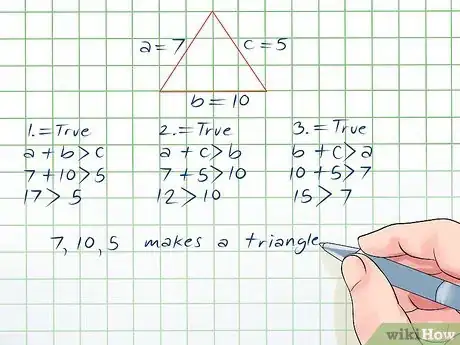 a = 7
c = 5
b = 10
1. = True
a + b > c
7 + 10 > 5
17 > 5
2. = True
a + c > b
7 + 5 > 10
12 > 10
3. = True
b + c > a
10 + 5 > 7
15 > 7
7, 10, 5 makes a triangle
wikiHow